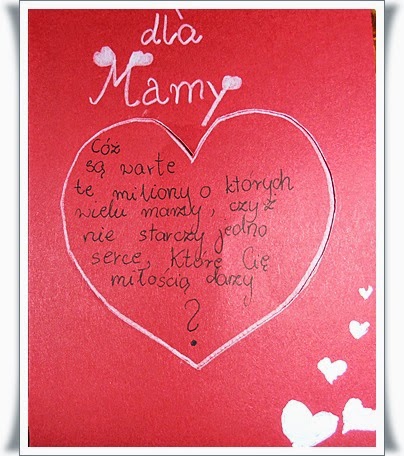 dla
Mamy
Cóż
są warte
te miliony o których
wielu marzy, czyż
nie starczy jedno
serce, które Cię
miłością darzy
?